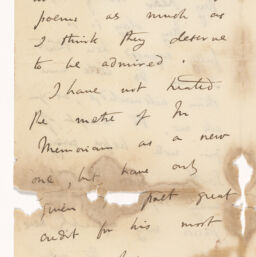 poems as much as
I think they deserve
to be admired.
I have not treated
the metre of In
Memoriam as a new
one, but have only
given poet great
credit for his most